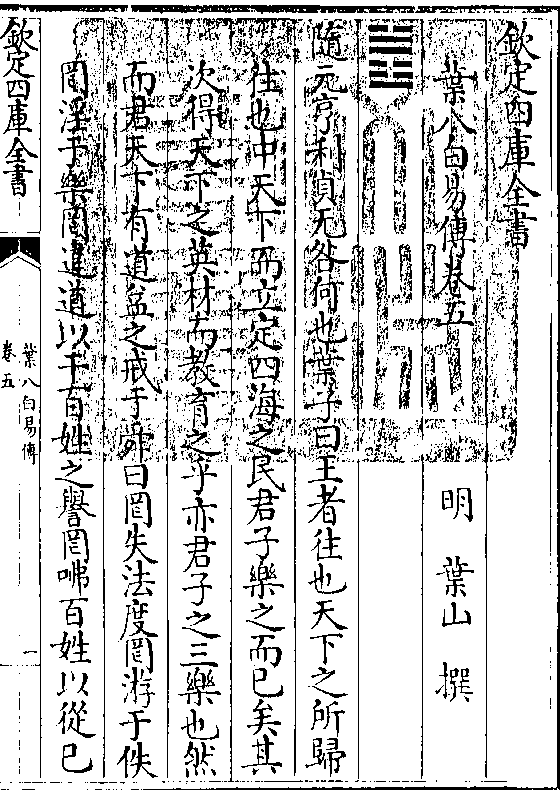 欽定四庫全書
葉八白易傳卷五
明 葉山 撰
隨元亨利貞无咎何也葉子曰王者往也天下之所歸
往也中天下而立定四海之民君子樂之而已矣其
次得天下之英材而教育之乎亦君子之三樂也然
而君天下有道益之戒于舜曰罔失法度罔游于佚
罔淫于樂罔違道以干百姓之譽罔咈百姓以從己
欽定四庫全書
葉八白易傳
卷五
一